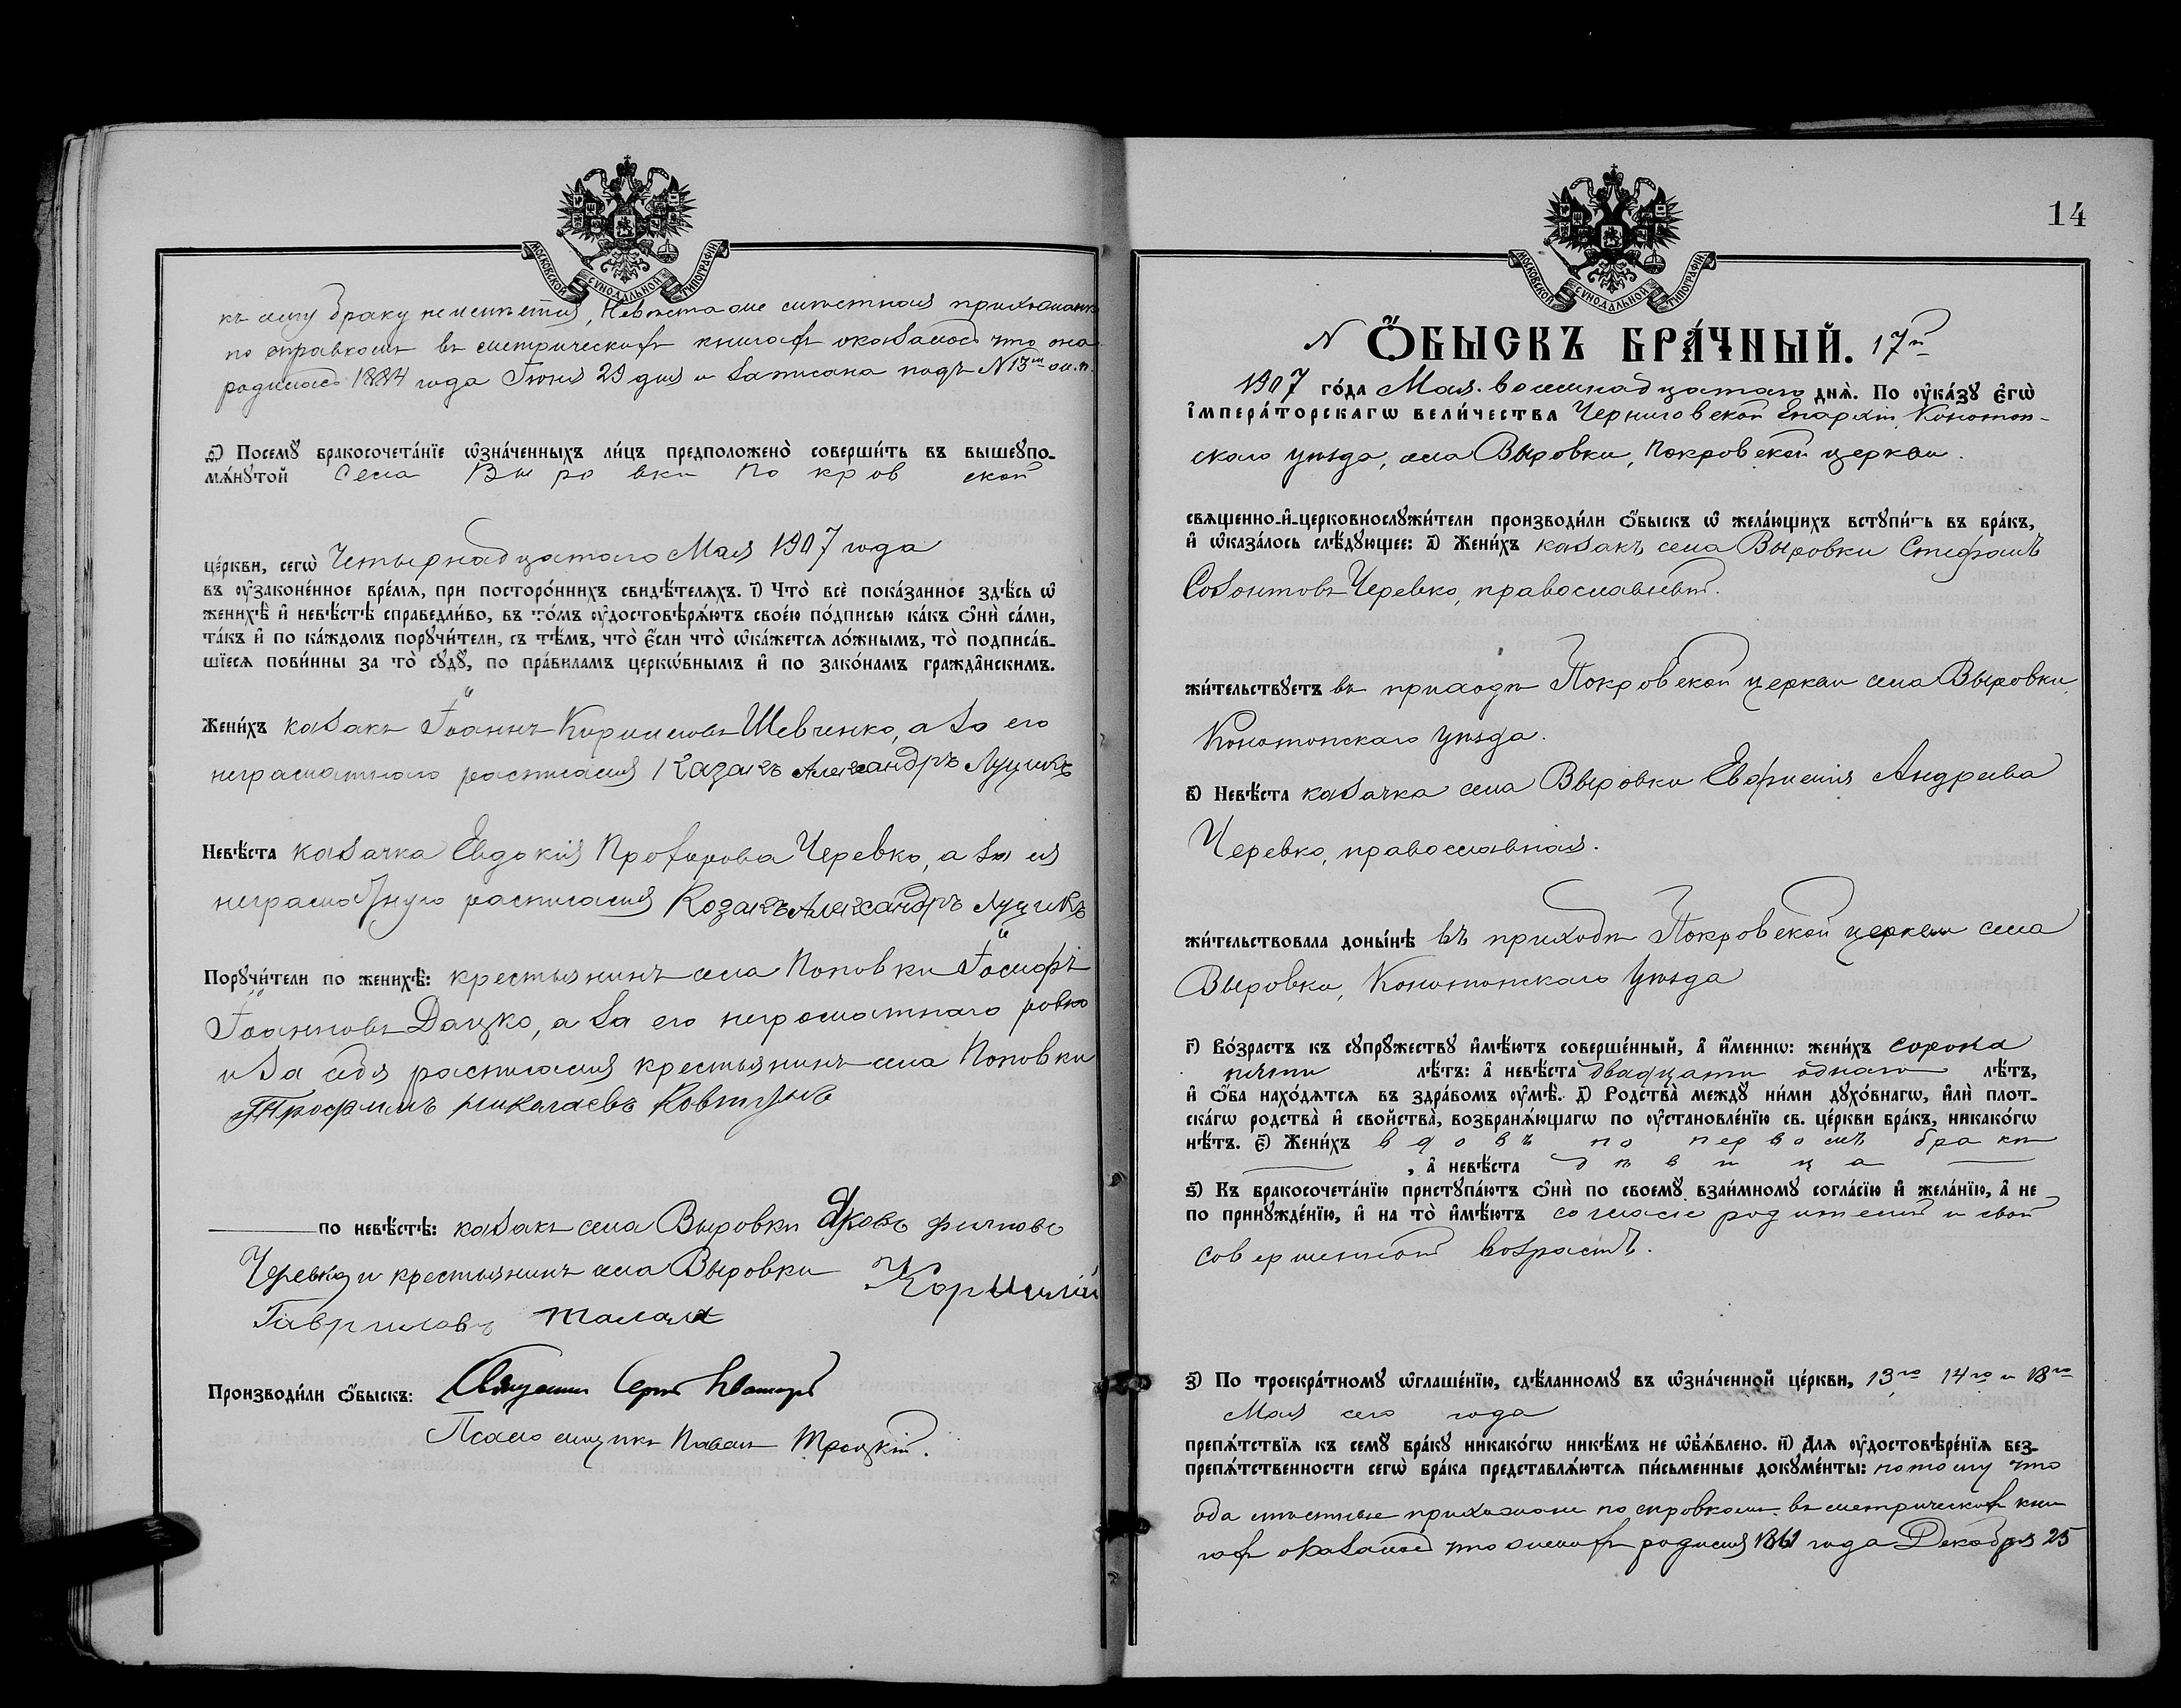 МОСКОВСКОЙ СѴНОДАЛЬНОЙ ТИПОГРАФІИ
къ сему браку не имѣется, Невѣста же мѣстная прихожанка
по справкамъ въ метрическихъ книгахъ оказалось что она
родилась 1884 года Іюня 29 дня и записана подъ N 13
ѳ҃) Посемꙋ̀ бракосочета́нїе ѡ҆зна́ченныхъ ли́цъ предположено̀ соверши́ть въ вышеꙋпо-
мѧ́нꙋтой села Выровки Покровской
це́ркви, сегѡ̀ Четырнадцатаго Мая 1907 года
въ ᲂу҆законе́нное вре́мѧ, при посторо́ннихъ свидѣ́телѧхъ. і҃) Что̀ всѐ пока́занное здѣ́сь ѡ҆
женихѣ̀ и҆ невѣ́стѣ справедли́во, въ то́мъ ᲂу҆достовѣрѧ́ютъ свое́ю по́дписью ка́къ ѻ҆нѝ са́ми,
та́къ и҆ по ка́ждомъ порꙋчи́тели, съ тѣ́мъ, что̀ є҆́сли что̀ ѡ҆ка́жетсѧ ло́жнымъ, то̀ подписа́в-
шїесѧ пови́нны за то̀ сꙋдꙋ̀, по пра́виламъ церкѡ́внымъ и҆ по зако́намъ гражда̑нскимъ.
Жени́хъ казакъ Іоаннъ Кирилловъ Шевченко, а за его
неграмотнаго росписался Казакъ Александръ Луцикъ
Невѣ́ста казачка Евдокія Профирова Черевко, а за ея
неграмотную росписался Козакъ Александръ Луцикъ
Порꙋчи́тели по женихѣ̀: крестьянинъ села Поповки Іосифъ
Іоанновъ Дацко, а за его неграмотнаго ровно
и за себя росписался крестьянинъ села Поповки
Трофимъ Николаевъ Ковтунъ
по невѣ́стѣ: казакъ села Выровки Яковъ
Черевко и крестьянинъ села Выровки
Гавриловъ Талала
Производи́ли ѻ҆́быскъ: Священникъ
Псаломщикъ Павелъ Троцкій.
14
МОСКОВСКОЙ СѴНОДАЛЬНОЙ ТИПОГРАФІИ
N Ѻ҆́БЫСКЪ БРА́ЧНЫЙ. 17й
1907 го́да Мая восемнадцатаго днѧ̀. По ᲂу҆ка́зꙋ є҆гѡ̀
і҆мпера́торскагѡ вели́чества Черниговской Епархіи, Конотоп-
скаго уѣзда, села Выровки, Покровской церкви.
свѧщенно-и҆-церковнослꙋжи́тели производи́ли ѻ҆́быскъ ѡ҆ жела́ющихъ встꙋпи́ть въ бра́къ,
и҆ ѡ҆каза́лось слѣ́дꙋющее: а҃) Жени́хъ казакъ села Выровки Стефанъ
Созонтовъ Черевко, православный.
жи́тельствꙋетъ въ приходѣ Покровской церкви села Выровки,
Конотопскаго Уѣзда.
в҃) Невѣ́ста казачка села Выровки Евфимія Андреева
Черевко, православная.
жи́тельствовала доны́нѣ въ приходѣ Покровской церкви села
Выровки, Конотопскаго Уѣзда
г҃) Во́зрастъ къ сꙋпрꙋ́жествꙋ и҆мѣ́ютъ соверше́нный, а҆ и҆́меннѡ: жени́хъ сорока
пяти лѣ́тъ: а҆ невѣ́ста двадцати одного лѣ́тъ,
и҆ ѻ҆́ба нахо́дѧтсѧ въ здра́вомъ ᲂу҆мѣ̀. д҃) Родства̀ междꙋ̀ ни́ми дꙋхо́внагѡ, и҆лѝ плот-
ска́гѡ родства̀ и҆ сво́йства̀, возбранѧ́ющагѡ по ᲂу҆становле́нїю св. це́ркви бра́къ, никако́гѡ
нѣ́тъ. є҃) Жени́хъ вдовъ по первомъ бракѣ
, а҆ невѣ́ста дѣвица
ѕ҃) Къ бракосочета́нїю пристꙋпа́ютъ ѻ҆нѝ по своемꙋ̀ взаи́мномꙋ согла́сїю и҆ жела́нїю, а҆ не
по принꙋжде́нїю, и҆ на то̀ и҆мѣ́ютъ согласіе родителей и свой
совершенный возрастъ.
з҃) По троекра́тномꙋ ѡ҆глаше́нїю, сдѣ́ланномꙋ въ ѡ҆зна́ченной це́ркви, 13го 14го и 18го
Мая сего года
препѧ́тствїѧ къ семꙋ̀ бра́кꙋ никако́гѡ никѣ́мъ не ѡ҆бъѧ́влено. и҃) Длѧ̀ ᲂу҆достовѣре́нїѧ без-
препѧ́тственности сегѡ̀ бра́ка представлѧ́ютсѧ пи́сьменные докꙋме́нты: потому что
оба мѣстные прихожане по справкамъ въ метрическихъ кни
гахъ оказалось что женихъ родился 1861 года Декабря 25